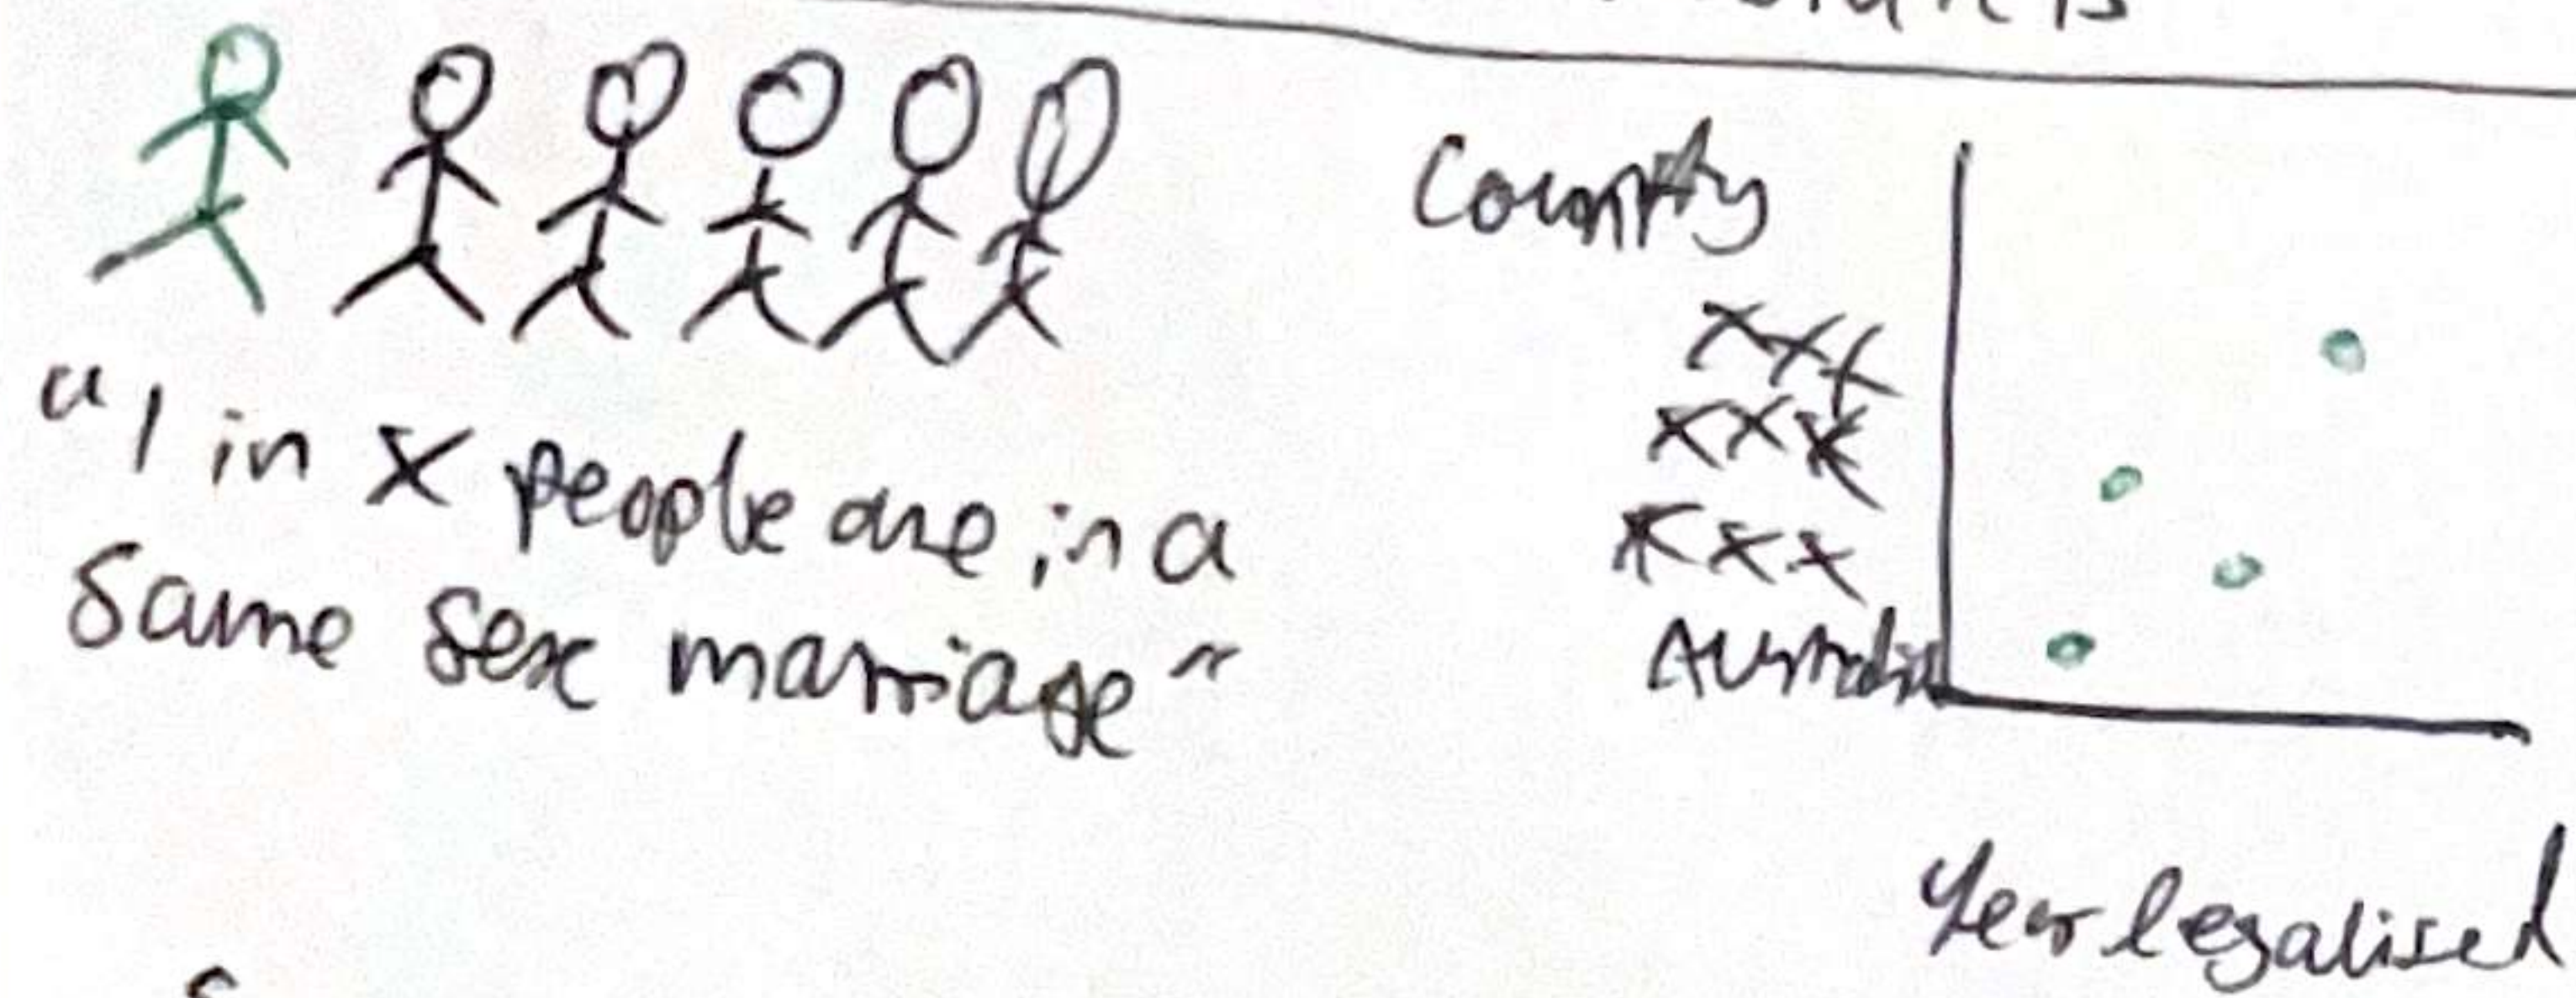 "1 in X people are in a
Same Sex marriage"
Country
XXX
XXX
XXX
Australia
Year legalised